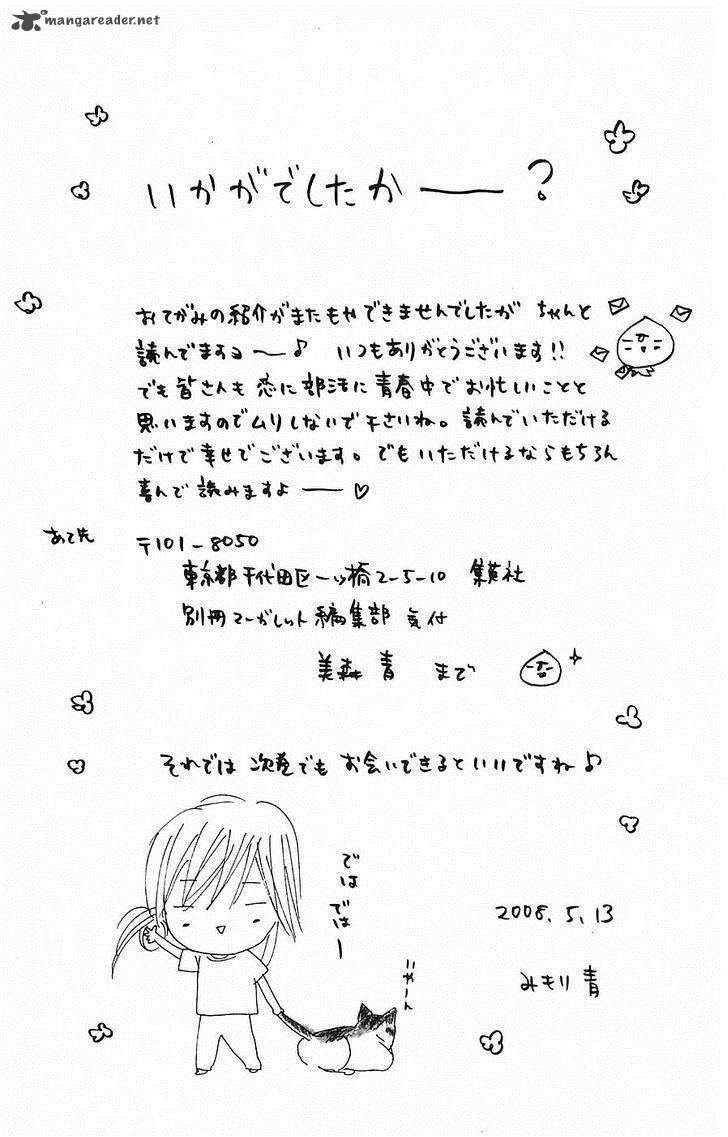 mangareader.net
いかがでしたかー?
おてがみの紹介がまたもやできませんでしたが ちゃんと
読んでますョ〜♪ いつもありがとうございます!!
でも皆さんも 恋に部活に青春中でお忙しいことと
思いますのでムリしないで下さいね。読んでいただける
だけで幸せでございます。でもいただけるならもちろん
喜んで読みますよー♡
あて先
〒101-8050
東京都千代田区一ツ橋2-5-10 集英社
別冊マーガレット編集部 気付
美森 青 まで
それでは 次巻でも お会いできるといいですね♪
ではではー
いやーん
2008.5.13
みもり 青